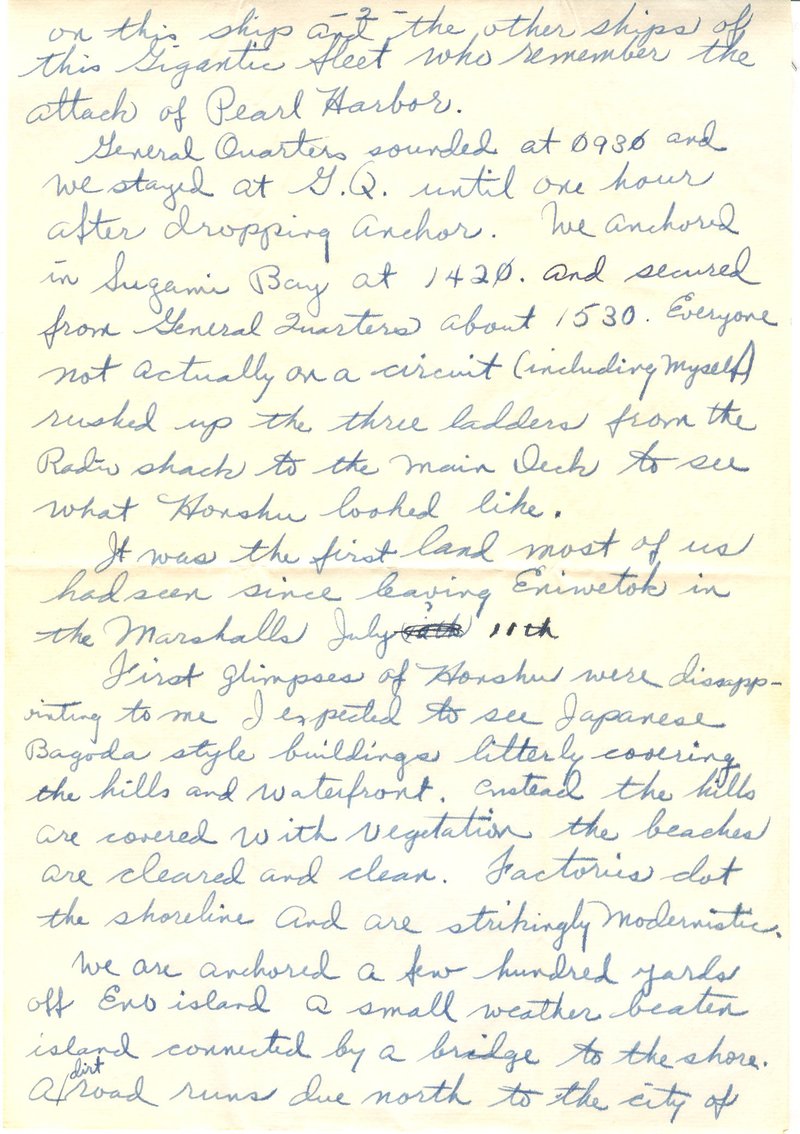 -2-
on this ship and the other ships of
this Gigantic fleet who remember the
attack of Pearl Harbor.
General Quarters sounded at 0930 and
we stayed at G.Q. until one hour
after dropping anchor. We anchored
in Sugami Bay at 1420. and secured
from General Quarters about 1530. Everyone
not actually on a circuit (including Myself)
rushed up the three ladders from the
Radio shack to the main Deck to see
what Honshu looked like.
It was the first land most of us
had seen since leaving Eniwetok in
the Marshalls July 11th
First glimpses of Honshu were dissapp-
ointing to me I expected to see Japanese
Bagoda style buildings litterly covering
the hills and waterfront. Instead the hills
are covered with vegetation the beaches
are cleared and clean. Factories dot
the shoreline And are strikingly Modernistic.
We are anchored a few hundred yards
off Eno island a small weather beaten
island connected by a bridge to the shore.
A dirt road runs due north to the city of